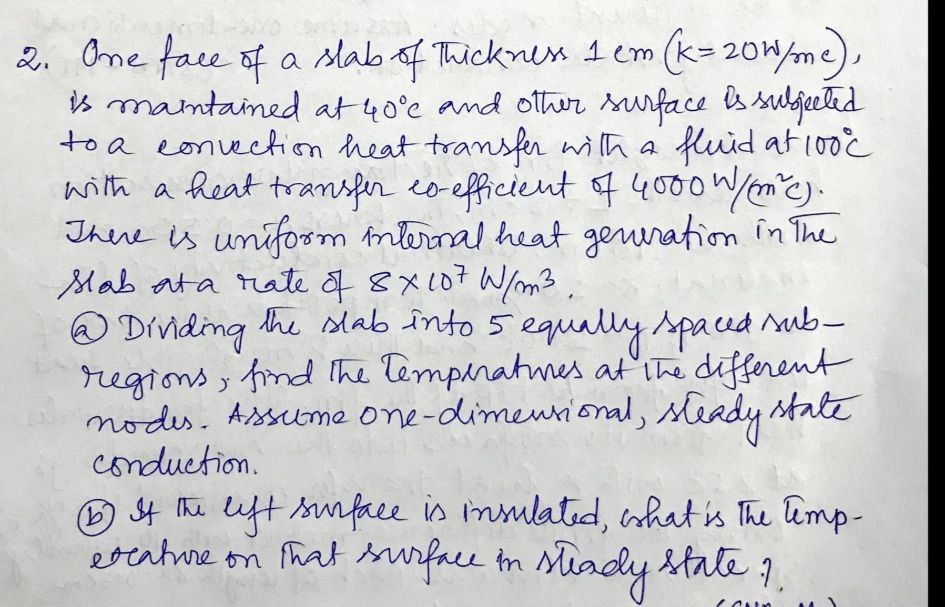 2. One face of a slab of Thickness 1 cm (k= 20W/mc),
is maintained at 40°c and other surface is subjected
to a convection heat transfer with a fluid at 100°c
with a heat transfer co-efficient of 4000 W/(m²c).
There is uniform internal heat generation in The
slab at a rate of 8×10⁷ W/m³.
(a) Dividing the slab into 5 equally spaced sub-
regions, find The Temperatures at the different
nodes. Assume one-dimensional, steady state
conduction.
(b) If the left surface is insulated, what is The Temp-
erature on That surface in steady state ?